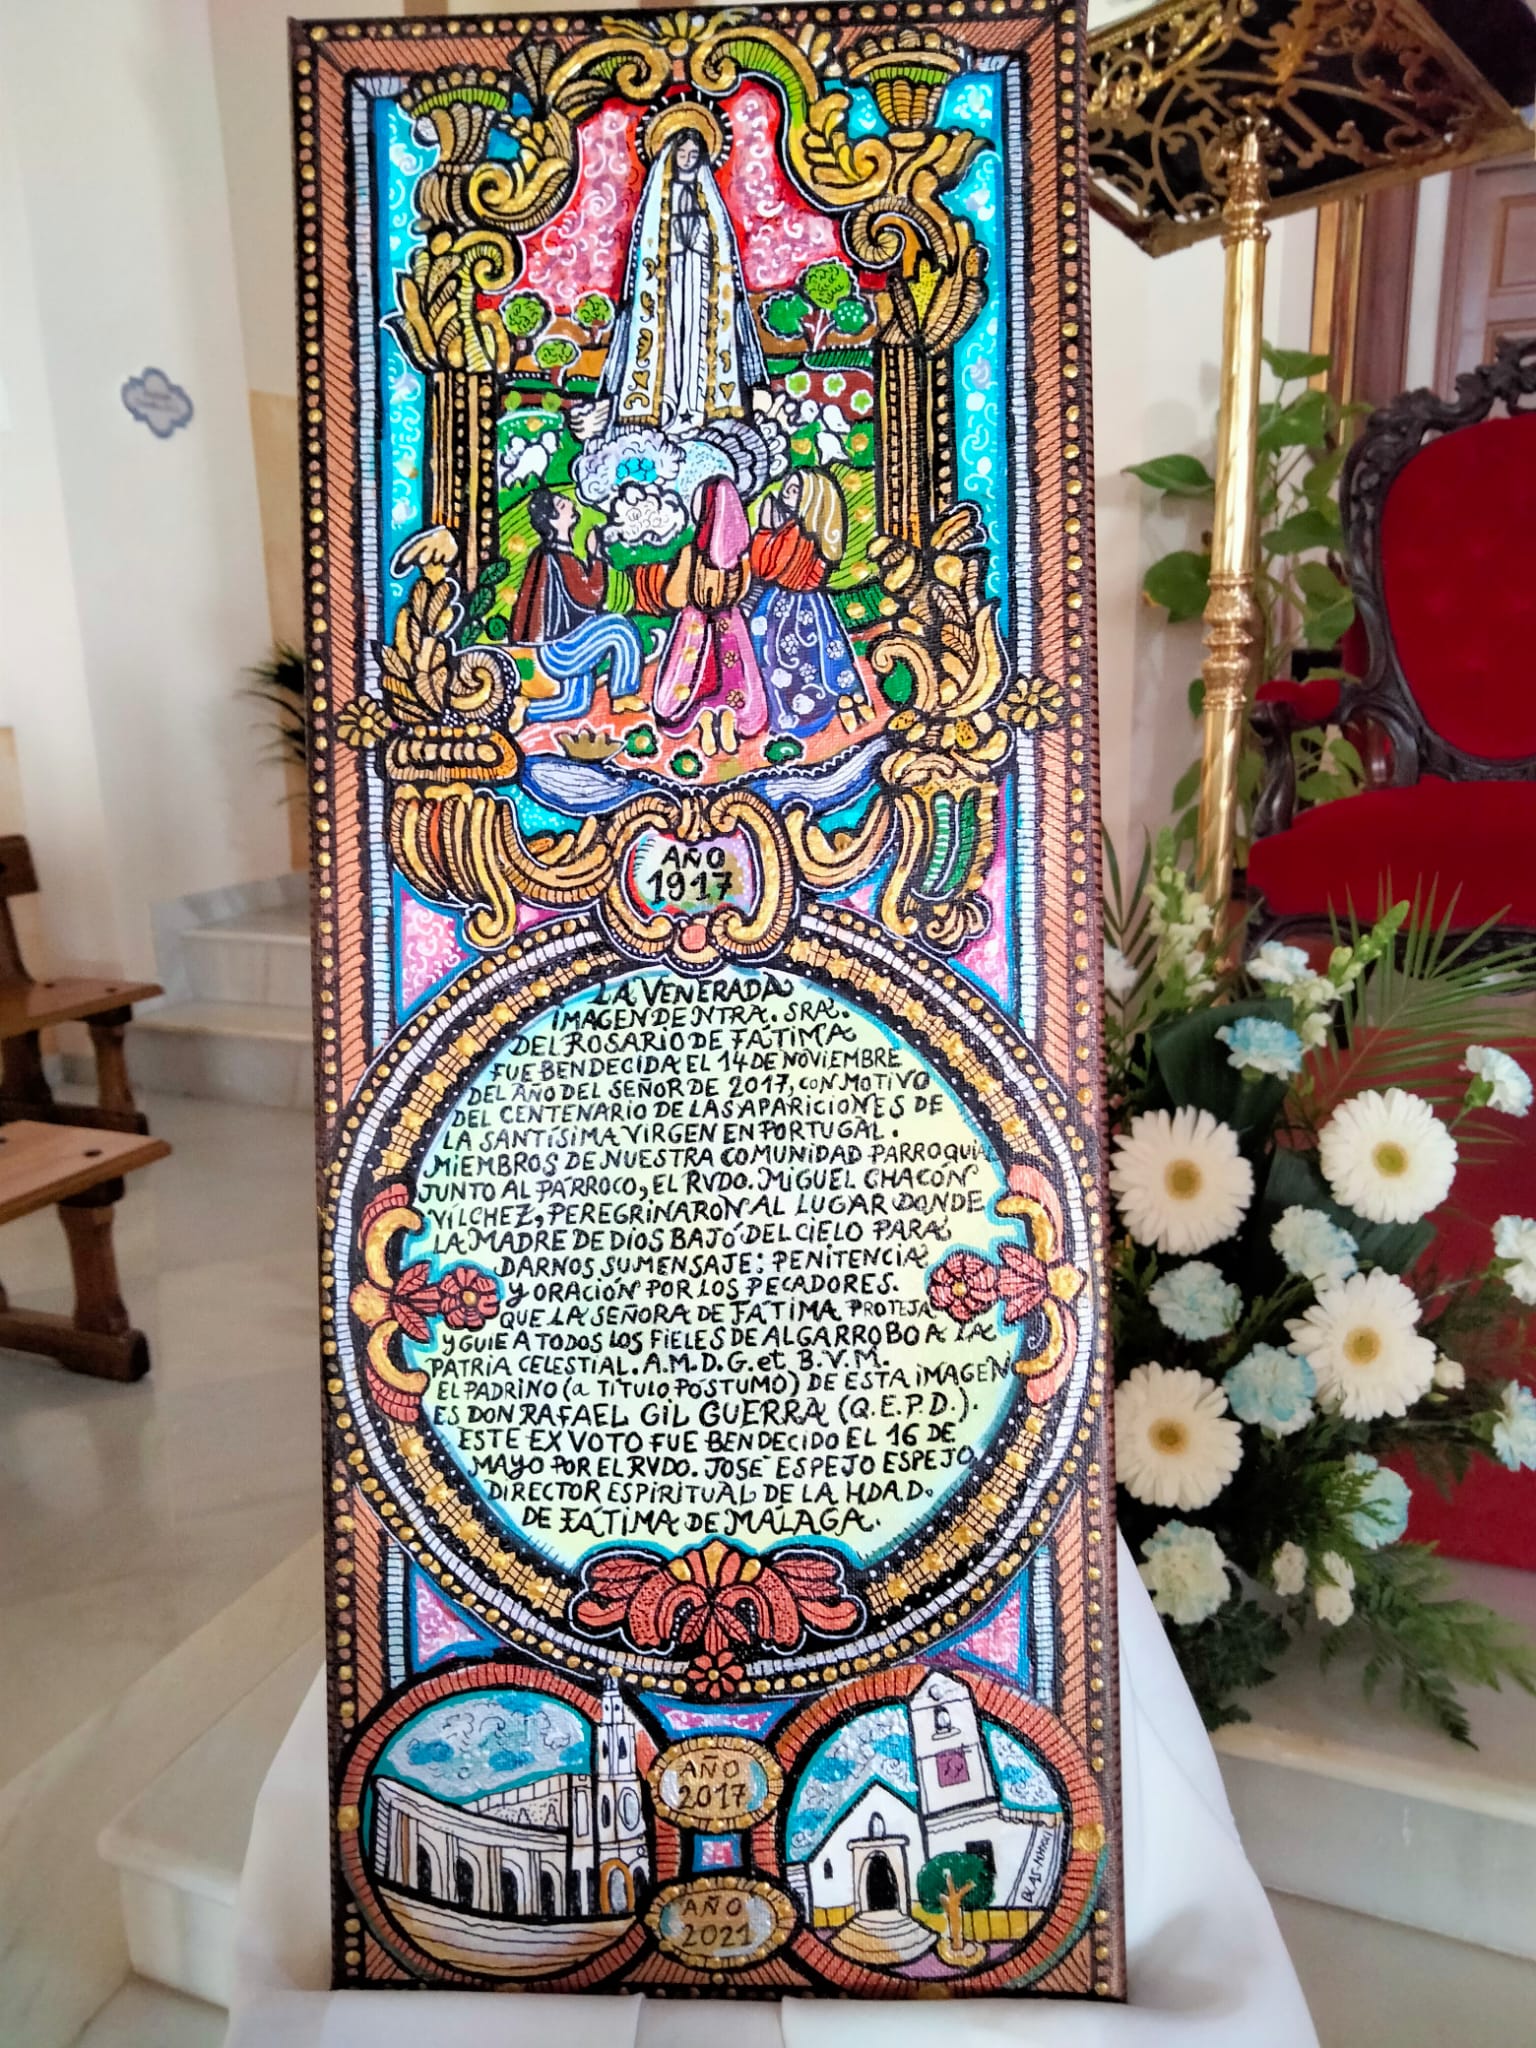 AÑO
1917
LA VENERADA
IMAGEN DE NTRA. SRA.
DEL ROSARIO DE FÁTIMA
FUE BENDECIDA EL 14 DE NOVIEMBRE
DEL AÑO DEL SEÑOR DE 2017, CON MOTIVO
DEL CENTENARIO DE LAS APARICIONES DE
LA SANTÍSIMA VIRGEN EN PORTUGAL.
MIEMBROS DE NUESTRA COMUNIDAD PARROQUIAL
JUNTO AL PÁRROCO, EL RVDO. MIGUEL CHACÓN
VÍLCHEZ, PEREGRINARON AL LUGAR DONDE
LA MADRE DE DIOS BAJÓ DEL CIELO PARA
DARNOS SU MENSAJE: PENITENCIA
Y ORACIÓN POR LOS PECADORES.
QUE LA SEÑORA DE FÁTIMA PROTEJA
Y GUIE A TODOS LOS FIELES DE ALGARROBO A LA
PATRIA CELESTIAL. A.M.D.G. et B.V.M.
EL PADRINO (a TÍTULO PÓSTUMO) DE ESTA IMAGEN
ES DON RAFAEL GIL GUERRA (Q.E.P.D.).
ESTE EXVOTO FUE BENDECIDO EL 16 DE
MAYO POR EL RVDO. JOSÉ ESPEJO ESPEJO,
DIRECTOR ESPIRITUAL DE LA HDAD.
DE FÁTIMA DE MÁLAGA.
AÑO
2017
AÑO
2021